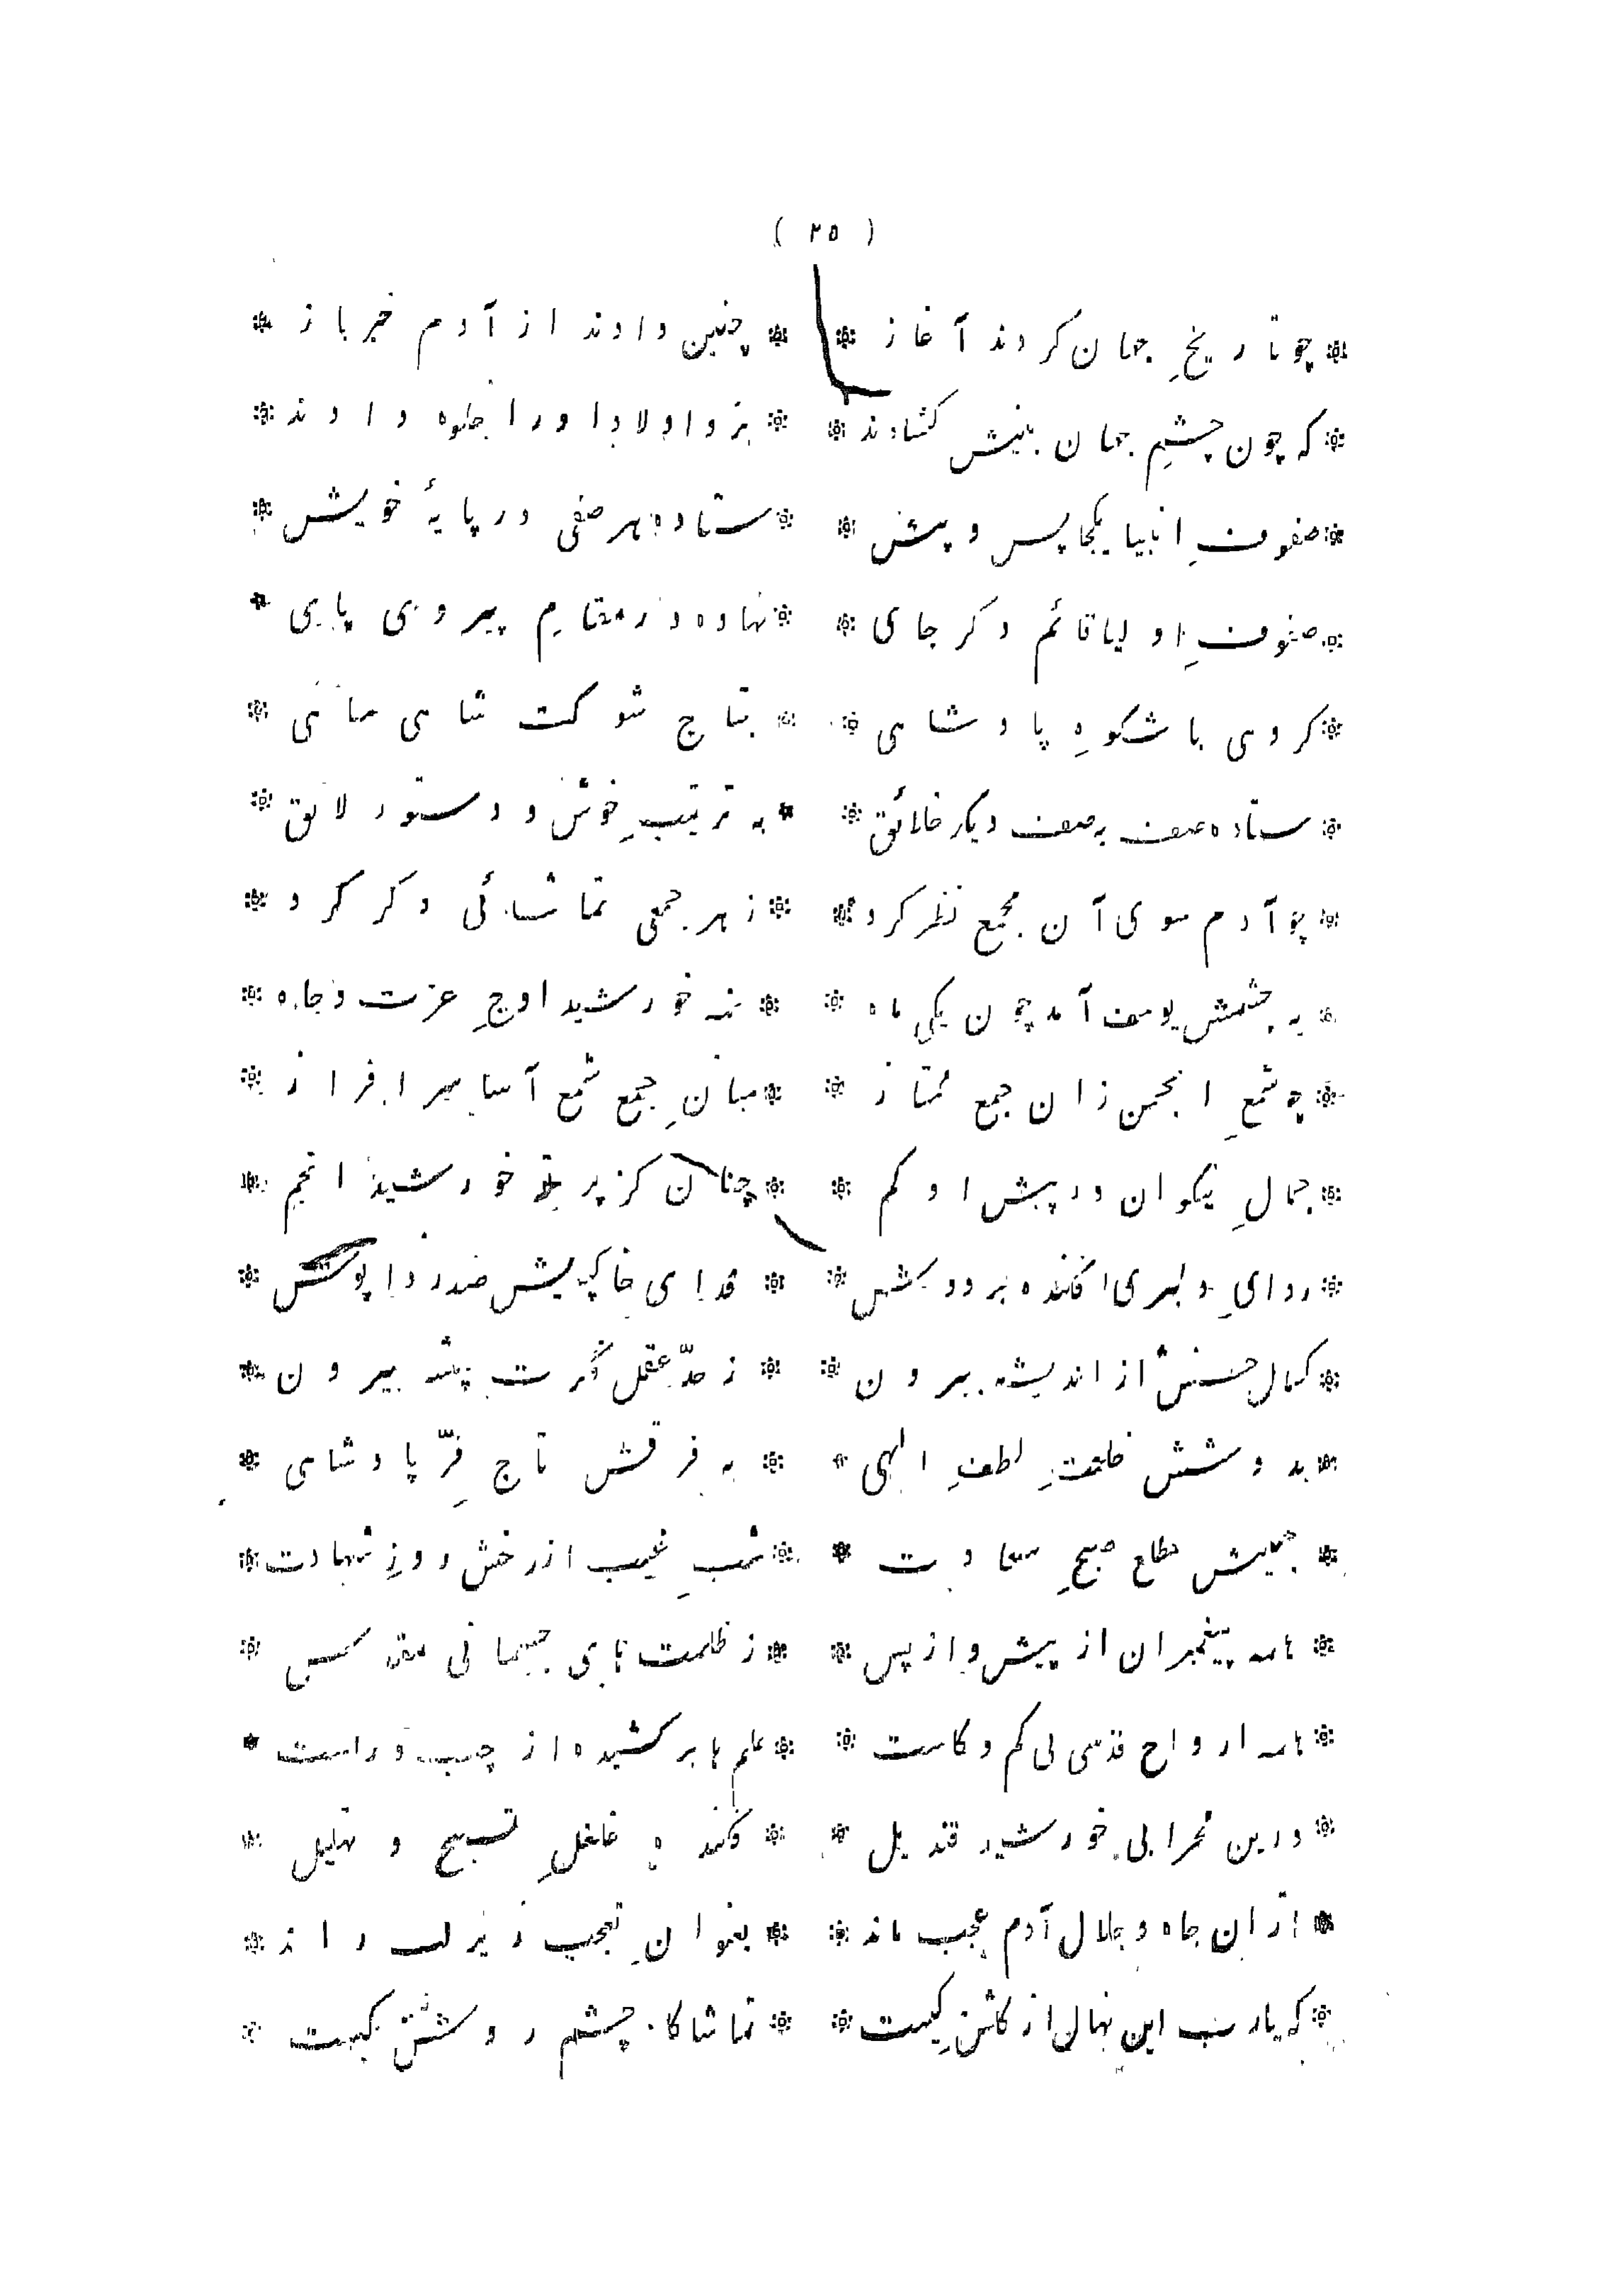 ( ٢٥ )
* چو تاریخِ جهان کردند آغاز * * چنین دادند از آدم خبر باز *
* که چون چشمِ جهان بینش کشادند * * بر و اولاد او را جلوه دادند *
* صفوفِ انبیا یکجا پس و پیش * * ستاده هر صفی در پایهٔ خویش *
* صفوفِ اولیا قائم دکر جای * * نهاده در مقامِ پیروی پای *
* کروهی با شکوهِ پادشاهی * * بتاج شوکت شاهی مباهی *
* ستاده صف به صف دیکر خلائق * * به ترتیبِ خوش و دستور لائق *
* چو آدم سوی آن مجمع نظر کرد * * ز هر جمعی تماشائی دکر کرد *
* به چشمش یوسف آمد چون یکی ماه * * نه خورشید اوجِ عزت و جاه *
* چو شمعِ انجمن زان جمع ممتاز * * میانِ جمع شمع آسا سر افراز *
* جمالِ نیکوان در پیش او کم * * چنان کز پرتو خورشید انجم *
* ردایِ دلبری افکنده بر دوش * * فدای خاکپایش صد ردا پوش *
* کمال حسنش از اندیشه بیرون * * ز حدّ عقل فکرت پیشه بیرون *
* بدوشش خلعتِ لطفِ الهی * * به فرقش تاج فرِّ پادشاهی *
* جبینش مطلع صبحِ سعادت * * شبِ غیب از رخش روزِ شهادت *
* همه پیغمبران از پیش و از پس * * ز ظلمت های جسمانی مقدس *
* همه ارواح قدسی بی کم و کاست * * علم ها بر کشیده از چپ و راست *
* درین محرابی خورشید قندیل * * فکنده غلغلِ تسبیح و تهلیل *
* ازان جاه و جلال آدم عجب ماند * * بعنوانِ تعجب زیر لب راند *
* که یارب این نهال از کلشنِ کیست * * تماشاکاه چشم روشن کیست *